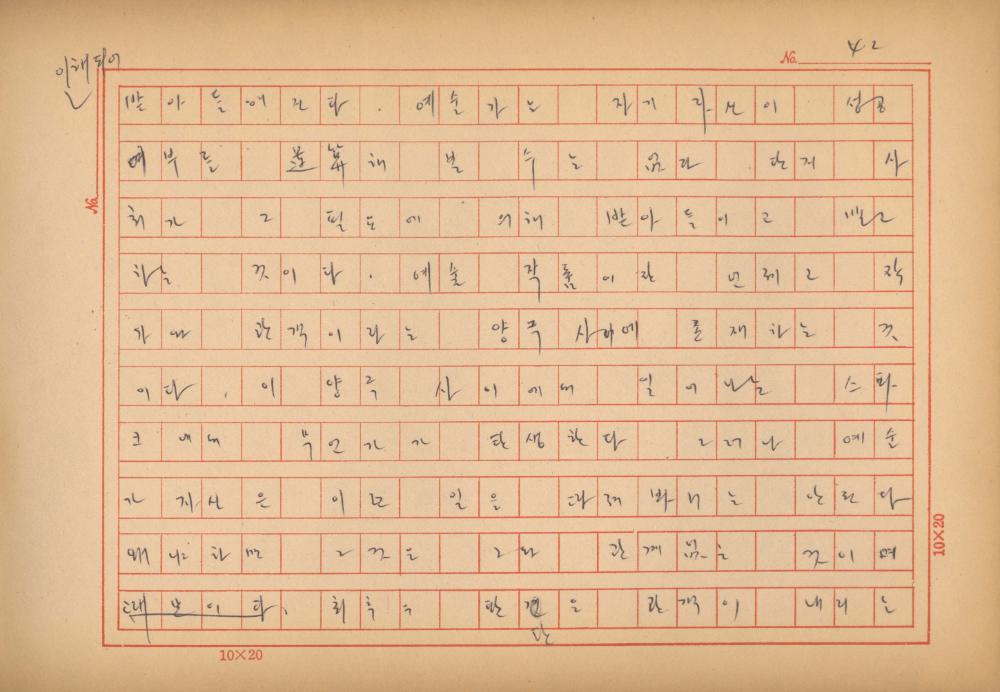 No. 42
이해되어
받아들여진다. 예술가는 자기 자신이 성공
여부를 逆算해 볼 수는 없다 단지 사
회가 그 필요에 의해 받아들이고
하는 것이다. 예술 작품이란 언제고 작
가와 관객이라는 양극 사이에 존재하는 것
이다. 이 양극 사이에서 일어나는 스파
크에서 무언가가 탄생한다 그러나 예술
가 자신은 이 일을 나는 난다
왜냐하면 그것은 그와 관계없는 것이며
때문이다. 최후의 판단은 관객이 내리는
No.
10×20
10×20